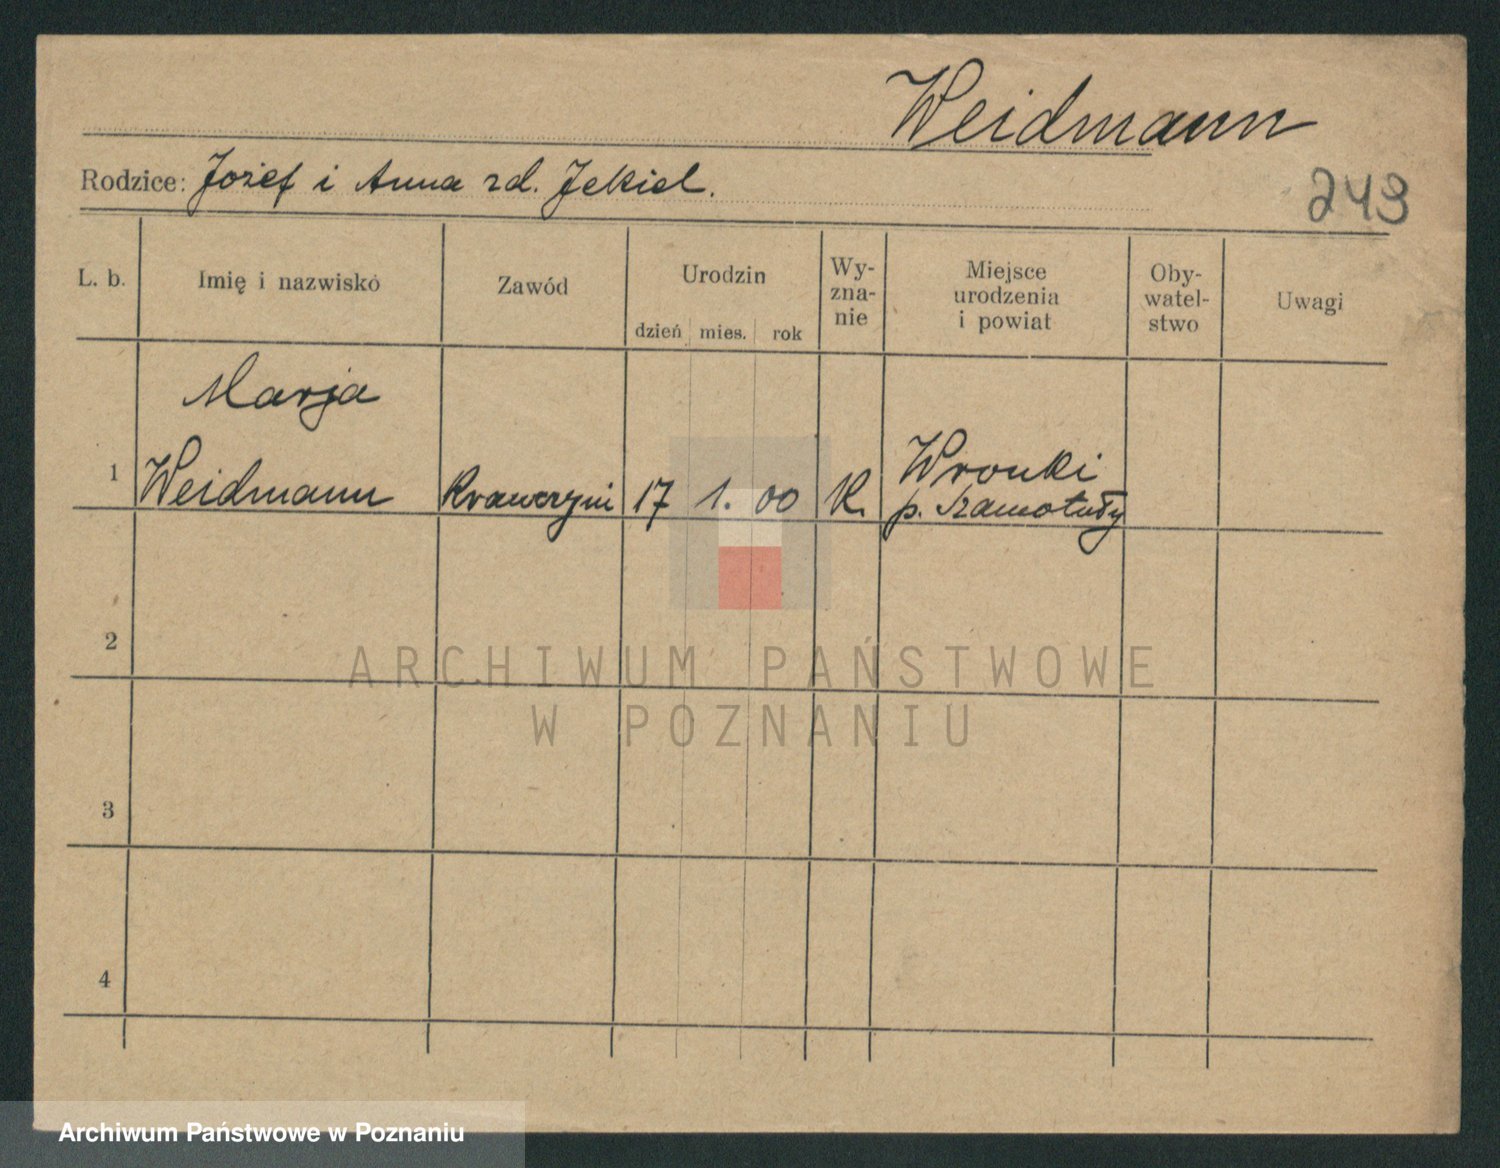 Weidmann
Rodzice: Józef i Anna zd. Jekiel.
249
L. b.
Imię i nazwisko
Zawód
Urodzin
dzień mies. rok
Wy-
zna-
nie
Miejsce
urodzenia
i powiat
Oby-
watel-
stwo
Uwagi
Marja
1 Weidmann Krawczyni 17 1. 00 K. Wronki
p. Szamotuły
2
ARCHIWUM PAŃSTWOWE
W POZNANIU
3
4
Archiwum Państwowe w Poznaniu